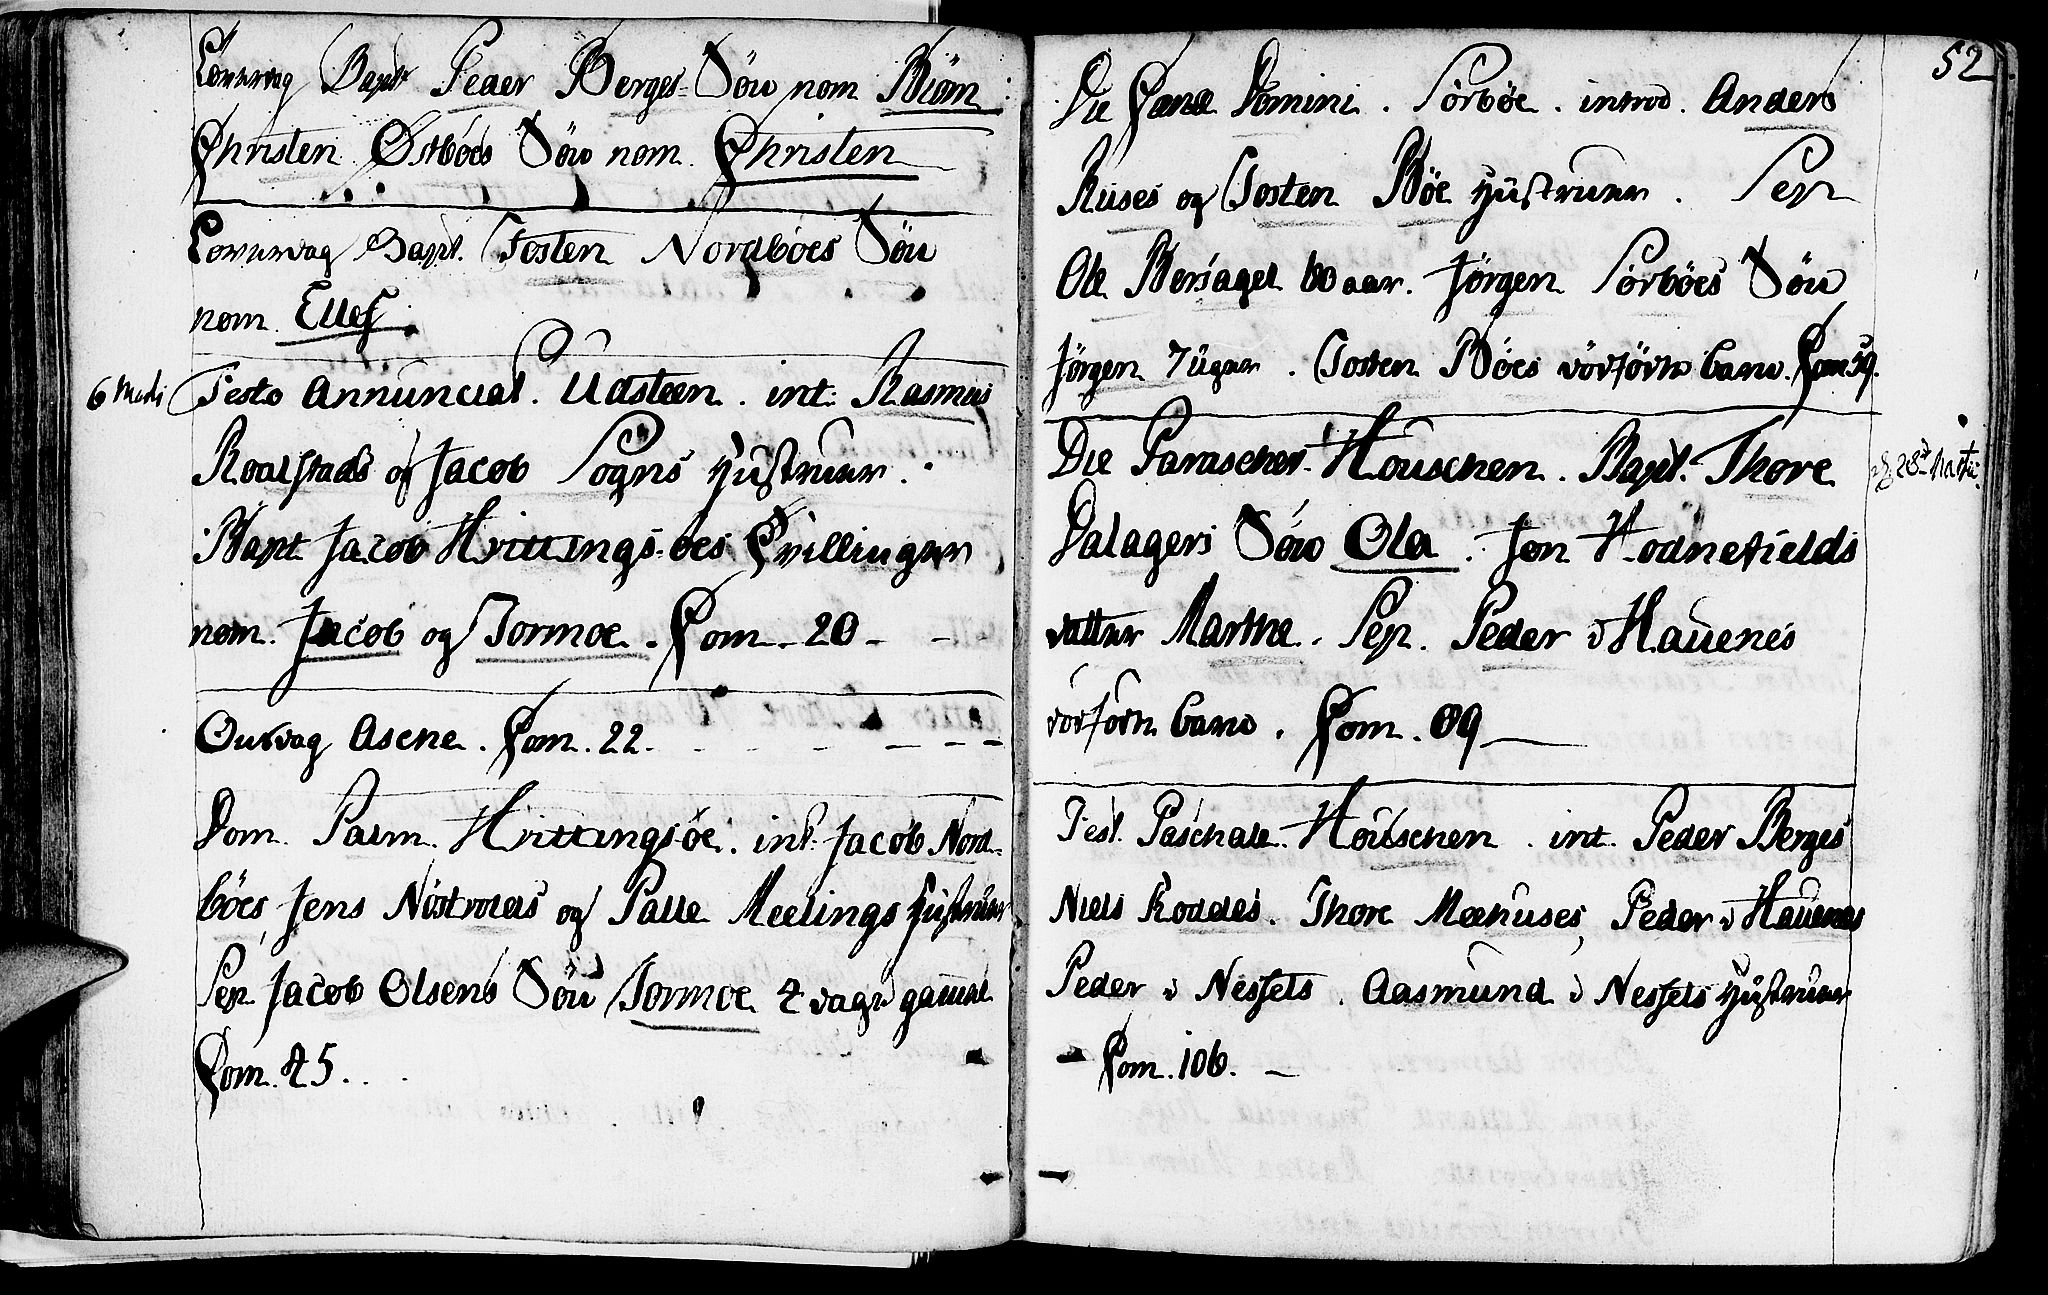 Löverdag Bapt. Peder Berges Sön nom. Biörn
Christen Östböes Sön nom. Christen
Löverdag Bapt. Josten Nordböes Sön
nom. Ellef.
Festo Annunciat. Udsteen. int. Rasmus
Roalstads og Jacob Sogns Hustruer.
Bapt. Jacob Hvittingsöes Tvillinger
nom. Jacob og Tormoe. Com. 20
Onsdag Ascne. Com. 22.
Dom. Palm. Hvittingsöe. int. Jacob Nord-
böes, Jens Nöstvolds og Palle Meelings Hustruer
Sep. Jacob Olsens Sön Tormoe 4 dage gammel
Com. 45.
52
Die Coenæ Domini. Sörböe. introd. Anders
Ruses og Josten Böe Hustruer. Sep.
Ole Bersagel 60 aar. Jörgen Sörböes Sön
Jörgen 7 uger. Josten Böes dödfödte barn. Com 59.
Die Parascheu. Houschen. Bapt. Thore
28 Martii.
Dalagers Sön Ola. Jon Hodnefields
datter Marthe. Sep. Peder i Hauenes
dödfödte barn. Com. 09
Fest. Paschale. Houschen. int. Peder Berges
Niels Koddes. Thore Meehuses, Peder i Hauenes
Peder i Nessets. Aasmund i Nessets Hustruer
Com. 106.